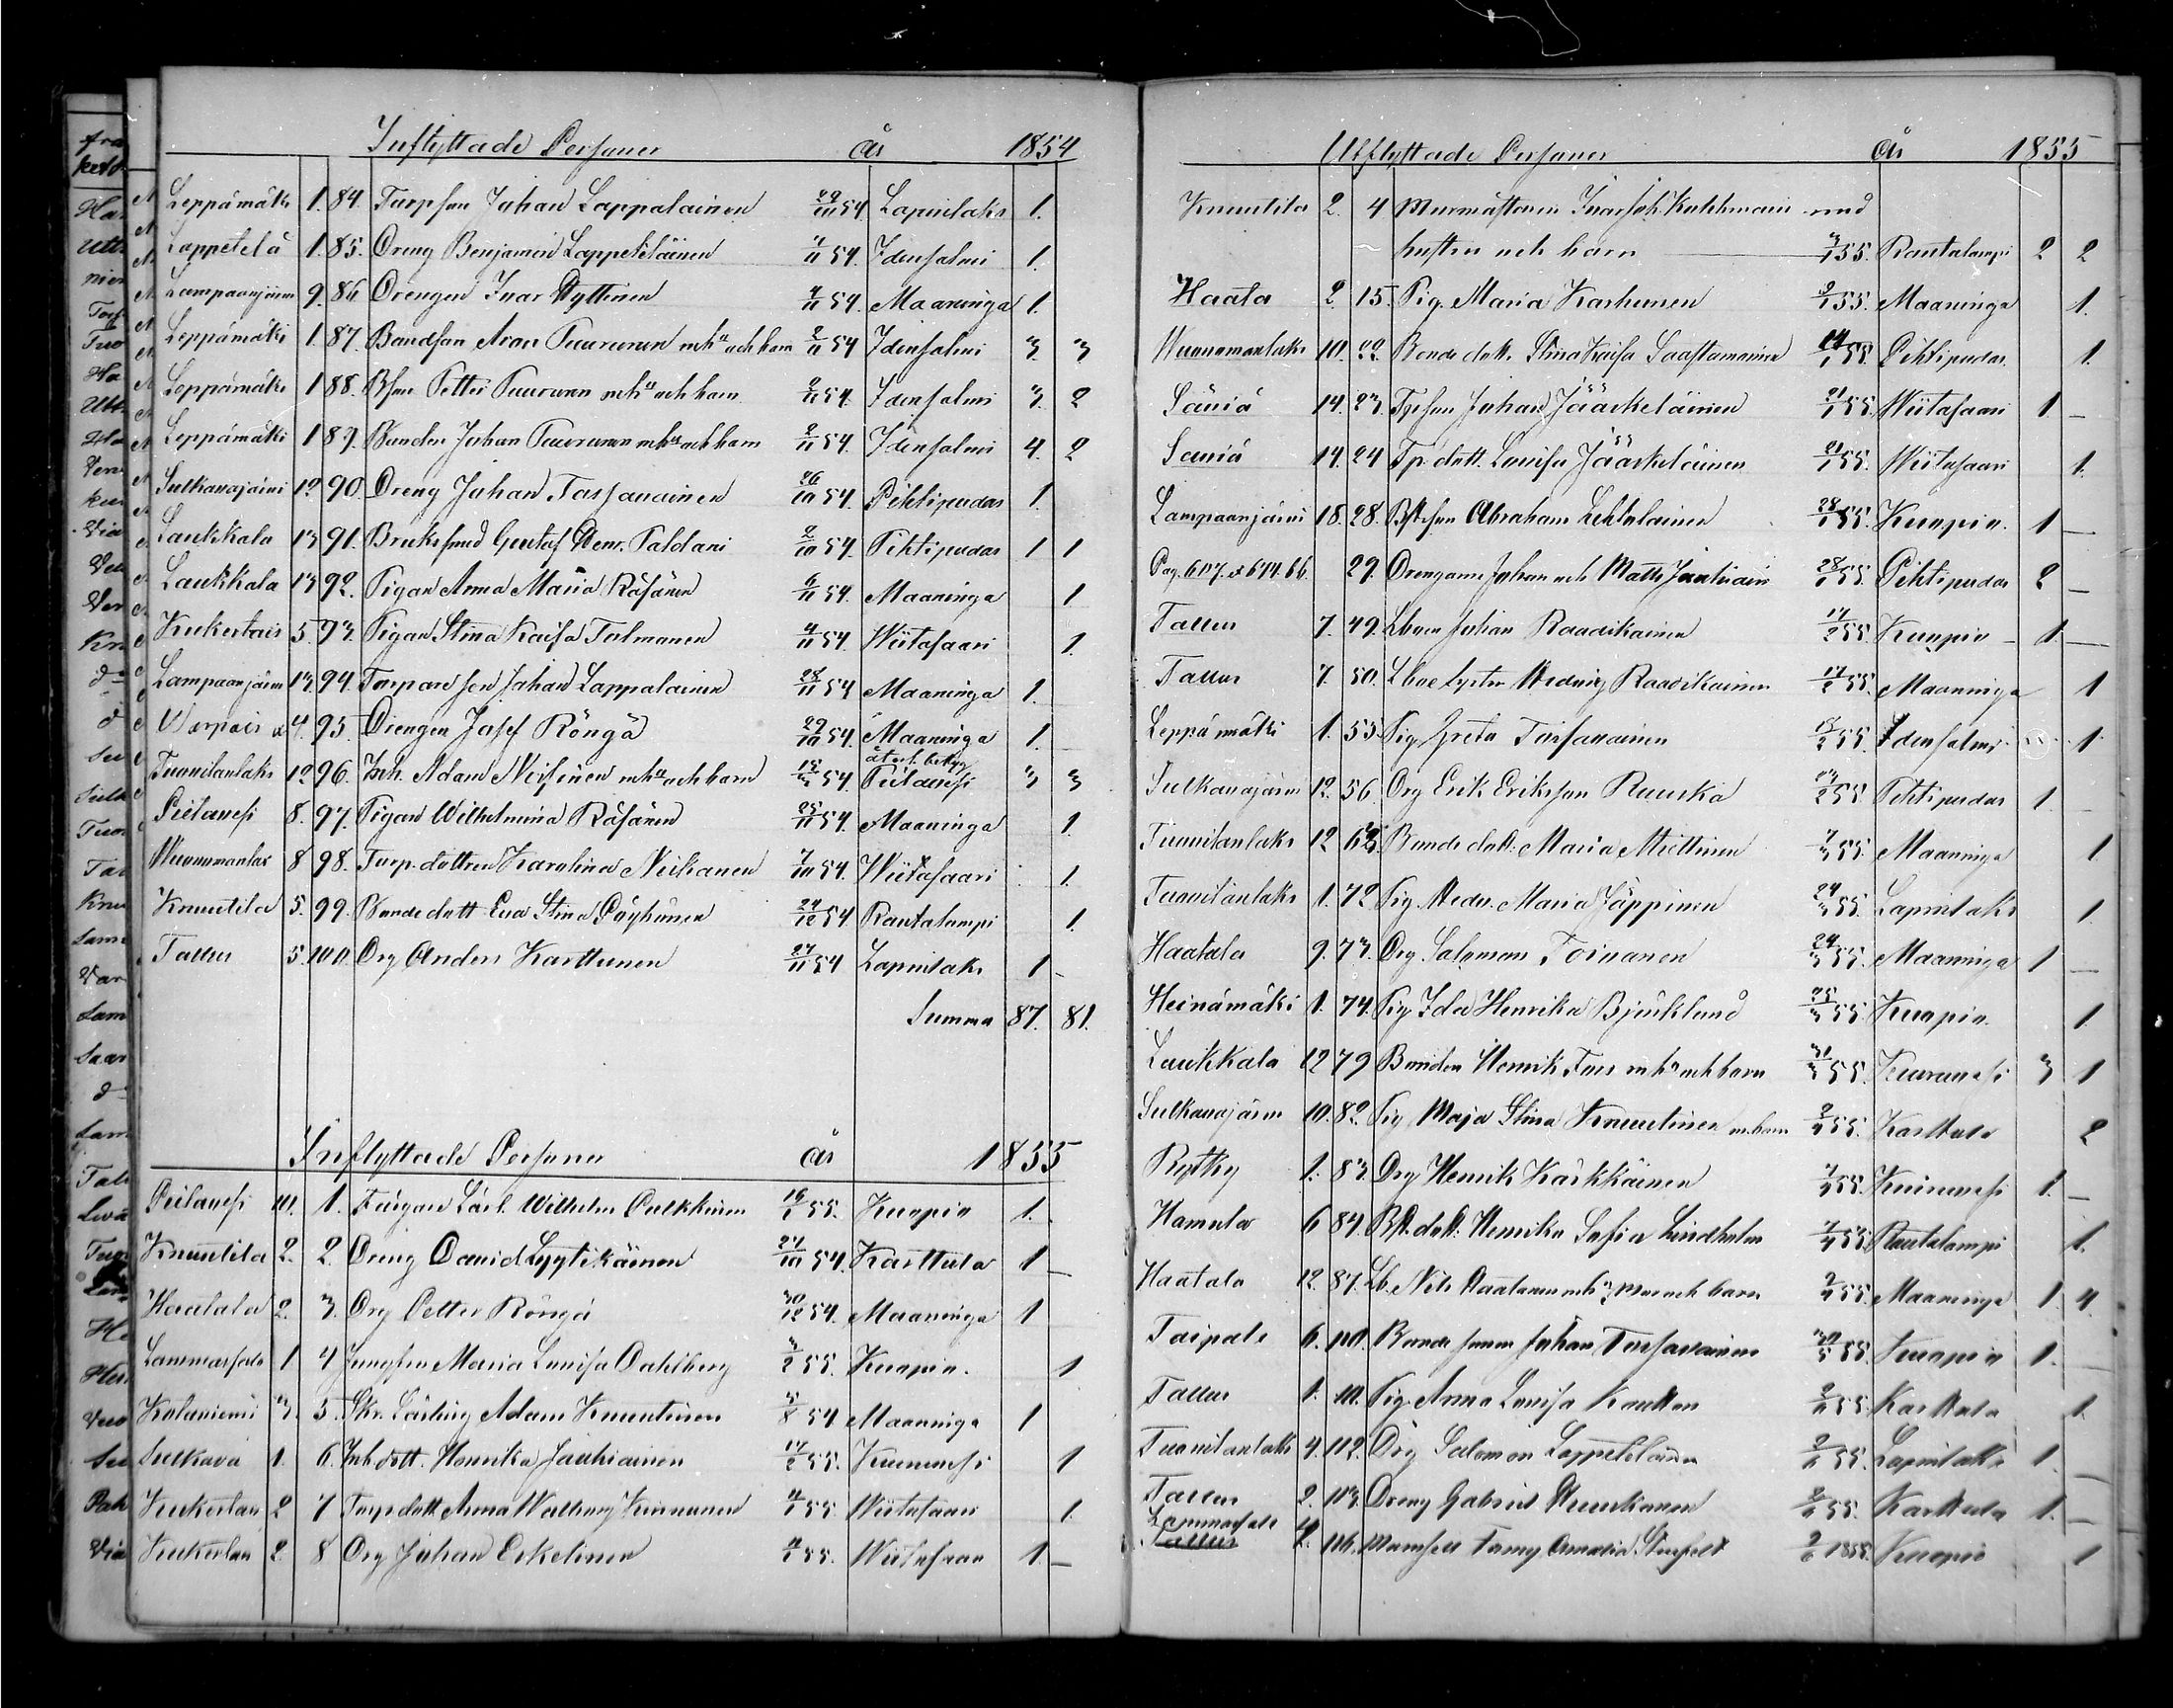 Inflyttade Personer år 1854
Leppämäki 1. 84. Torpson Johan Lappalainen 29/10 54. Lapinlaks 1.
Lappetelä 1. 85. Dreng Benjamin Lappeteläinen 4/11 54. Idensalmi 1.
Lampaanjärvi 9. 86 Drengen Ivar Hyttinen 4/11 54. Maaninga 1.
Leppämäki 1 87. Bondson Aron Tuurunen m hu och barn 2/11 54 Idensalmi 3 3
Leppämäki 1 88. Bson Petter Tuurunen m hu och barn 2/11 54. Idensalmi 3. 2
Leppämäki 1 89. Bonden Johan Tuurunen m hu och barn 2/11 54. Idensalmi 4. 2
Sulkavajärvi 12 90. Dreng Johan Tarfanainen 26/10 54. Pihtipudas 1.
Laukkala 13 91. Gustaf Henr. Paldani 2/10 54. Pihtipudas 1 1
Laukkala 13 92. Pigan Anna Maria Räsänen 6/11 54. Maaninga 1
5. 93. Pigan Stina Kaisa Talmanen 4/11 54. Wiitasaari 1.
Lampaanjärvi 13. 94. Torpareson Johan Lappalainen 28/11 54 Maaninga 1.
4. 95. Drengen Josef Röngä 29/10 54. Maaninga 1.
Tuovilanlaks 12 96. Inh. Adam m hu och barn 54 Pielavesi 3 3
Pielavesi 8. 97. Pigan Wilhelmina Räsänen 25/11 54. Maaninga 1.
8 98. Torp. dottren Karolina 7/10 54. Wiitasaari 1.
Knuutila 5. 99. Bondedott Eva Stina Pöyhönen 24/10 54 Rautalampi 1.
Tallus 5. 100. Drg Anders Karttunen 27/11 54 Lapinlaks 1
Summa 87. 81.
Inflyttade Personer år 1855
Pielavesi 10. 1. Carl Wilhelm Pulkkinen 16/1 55. Kuopio 1.
Knuutila 2. 2. Dreng David Lyytikäinen 27/10 54. Karttula 1
Haatala 2. 3. Drg Petter Röngä 30/12 54. Maaninga 1
Lammassalo 1 4 Jungfru Maria Lovisa Dahlberg 3/2 55. Kuopio. 1
Kolaniemi 3. 5. Skr. Lärling Adam Knuutinen 5/8 54 Maaninga 1
Sulkava 1. 6. Inh dott. Henrika Jauhiainen 17/2 55. 1
2 7 Torp dott Anna Walborg Kinnunen 4/1 55 Wiitasaari 1.
2. 8 Drg Johan Erkelinen 4/1 55. Wiitasaari 1
Utflyttade Personer år 1855
Knuutila 2. 4 Murmästaren med
hustru och barn 55. Rautalampi 2 2
Haata 2. 15. Pig. Maria Karhunen 55 Maaninga 1.
10. 22. Bonde dott. Stina Kaisa Saastamoinen 14/1 55. Pihtipudas 1.
Säviä 14. 23. Tpson Johan Jääskeläinen 21/1 55. Wiitasaari 1.
Säviä 14. 24 Tp. dott. Lovisa Jääskeläinen 21/1 55. Wiitasaari 1.
Lampaanjärvi 18. 28. Abraham Lehtolainen 28/1 55. Kuopio. 1
Pag. 29. Drengarne Johan och Matts Jauhiain 28/1 55. Pihtipudas 2
Tallus 7. 49. Johan Raadikainen 17/2 55. Kuopio 1
Tallus 7. 50. Hedvig Raadikainen 17/2 55. Maaninga 1
Leppämäki 1. 55. Pig Greta 55. Idensalmi 1.
Sulkavajärvi 12. 56. Drg Erik Eriksson Ruuska 55. Pihtipudas 1.
Tuovilanlaks 12 Bonde dott. Maria Miettinen 55. Maaninga 1
Tuovilanlaks 1. 72. Pig. Hedv. Maria Jäppinen 24/3 55. Lapinlaks 1
Haatala 9. 73. Drg Salomon Toivanen 24/3 55. Maaninga 1
Heinämäki 1. 74. Pig. Ida Henrika Björklund 25/3 55. Kuopio. 1.
Laukkala 12 79 Bonden Henrik m hu och barn 31/3 55. 3 1
Sulkavajärvi 10. 82. Pig Maja Stina Knuutinen m. barn 2/4 55. Karttula 2
Rytky 1. 83. Drg Henrik Kärkkäinen 55. 1.
Hamula 6 84. dott. Henrika Sofia Lindholm 55. Rautalampi 1.
Haatala 12. 87. Lb. Nils och barn 55. Maaninga 1. 4.
Taipale 6. 110. Bonde sonen Johan 55. Kuopio 1.
Tallus 1. 111. Pig. Anna Lovisa 55. Karttula 1.
Tuovilanlaks 4. 112. Drg Salomon Lappeteläinen 55. Lapinlaks 1.
Tallus 2. 113. Dreng Gabriel 55. Karttula 1.
Lammassalo
Tallus 116. Mamsell Fanny Amalia 1855. Kuopio 1